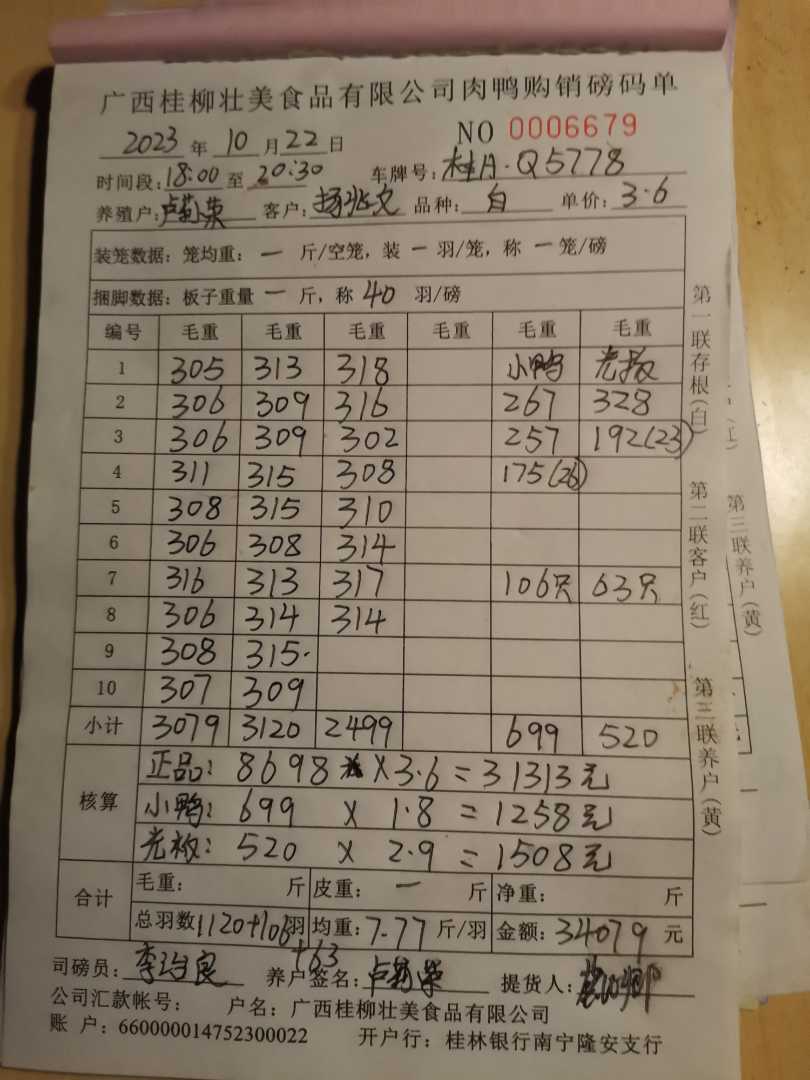 广西桂柳壮美食品有限公司肉鸭购销磅码单
2023 年 10 月 22 日 NO 0006679
时间段: 18:00 至 20:30 车牌号: 桂A·Q5778
养殖户: 卢 荣 客户: 杨兆文 品种: 白 单价: 3.6
装笼数据: 笼均重: 一 斤/空笼, 装 一 羽/笼, 称 一 笼/磅
捆脚数据: 板子重量 一 斤, 称 40 羽/磅
编号 毛重 毛重 毛重 毛重 毛重 毛重
1 305 313 318 小鸭 光板
2 306 309 316 267 328
3 306 309 302 257 192(23)
4 311 315 308 175(26)
5 308 315 310
6 306 308 314
7 316 313 317 106只 63只
8 306 314 314
9 308 315
10 307 309
小计 3079 3120 2499 699 520
核算
正品: 8698 ×3.6=31313元
小鸭: 699 × 1.8 = 1258元
光板: 520 × 2.9 = 1508元
合计
毛重: 斤 皮重: 一 斤 净重: 斤
总羽数 1120+106 羽 均重: 7.77 斤/羽 金额: 34079 元
+63
司磅员: 李 良 养户签名: 卢 荣 提货人:
公司汇款帐号: 户名: 广西桂柳壮美食品有限公司
账 户: 660000014752300022 开户行: 桂林银行南宁隆安支行
第一联存根(白)
第二联客户(红)
第三联养户(黄)
第三联养户(黄)